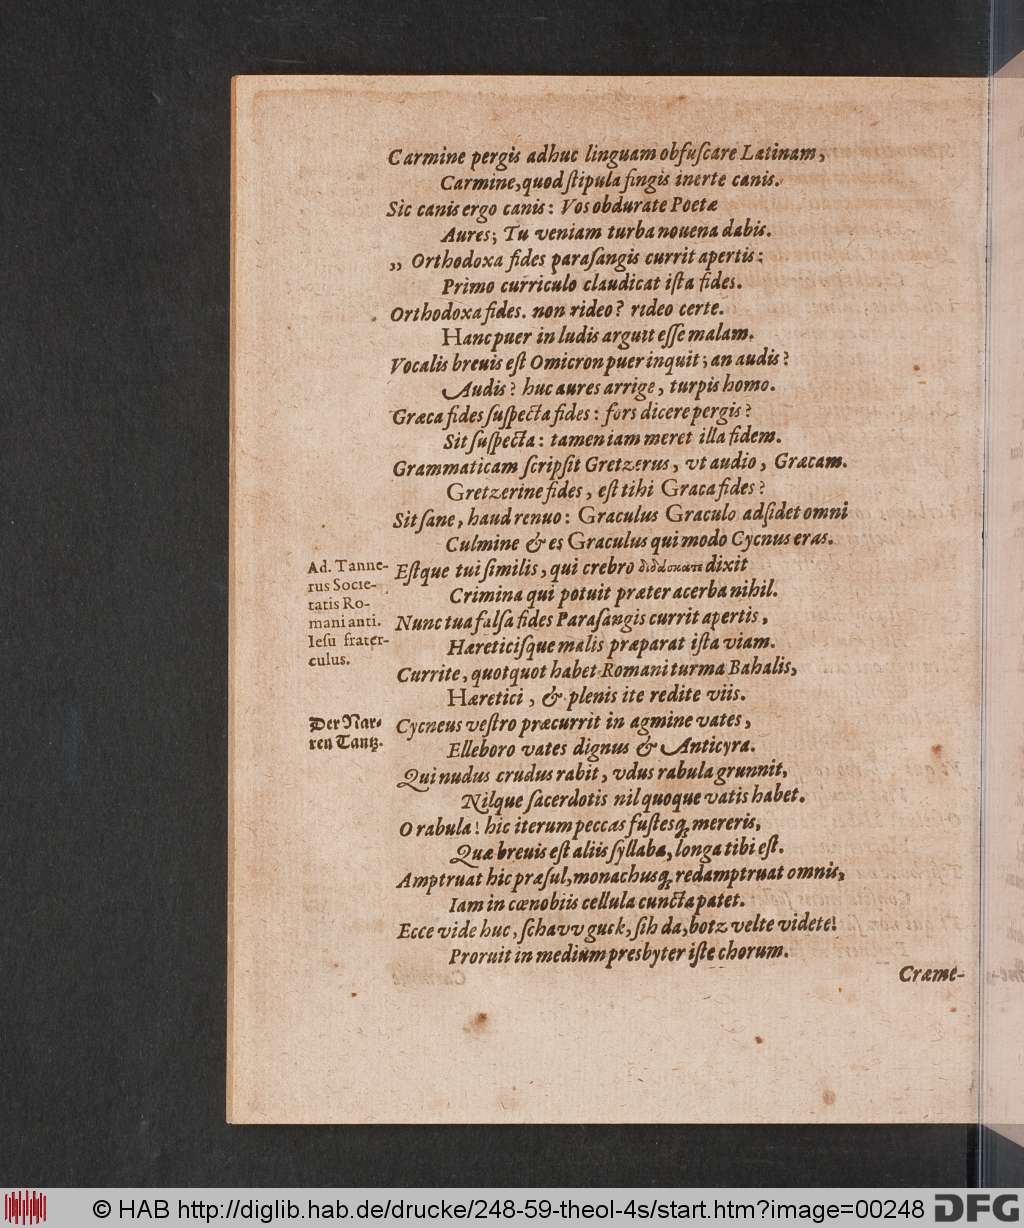 Carmine pergis adhuc linguam obfuſcare Latinam,
Carmine, quod ſtipula fingis inerte canis.
Sic canis ergo canis: Vos obdurate Poetæ
Aures; Tu veniam turba nouena dabis.
„ Orthodoxa fides paraſangis currit apertis:
Primo curriculo claudicat iſta fides.
Orthodoxa fides. non rideo? rideo certe.
Hanc puer in ludis arguit eſſe malam.
Vocalis breuis eſt Omicron puer inquit; an audis?
Audis? huc aures arrige, turpis homo.
Græca fides ſuſpecta fides: fors dicere pergis?
Sit ſuſpecta: tamen iam meret illa fidem.
Grammaticam ſcripſit Gretzerus, vt audio, Græcam.
Gretzerine fides, eſt tibi Græca fides?
Sit ſane, haud renuo: Graculus Graculo adſidet omni
Culmine & es Graculus qui modo Cycnus eras.
Ad. Tanne-
rus Socie-
tatis Ro-
mani anti.
Ieſu frater-
culus.
Eſtque tui ſimilis, qui crebro dixit
Crimina qui potuit præter acerba nihil.
Nunc tua falſa fides Paraſangis currit apertis,
Hæreticiſque malis præparat iſta viam.
Currite, quotquot habet Romani turma Bahalis,
Hæretici, & plenis ite redite viis.
Der Nar-
ren Tantz.
Cycneus veſtro præcurrit in agmine vates,
Elleboro vates dignus & Anticyra.
Qui nudus crudus rabit, vdus rabula grunnit,
Nilque ſacerdotis nil quoque vatis habet.
O rabula! hic iterum peccas fuſtesq́; mereris,
Quæ breuis eſt aliis ſyllaba, longa tibi eſt.
Amptruat hic præſul, monachusq́; redamptruat omnis,
Iam in cœnobiis cellula cuncta patet.
Ecce vide huc, ſchavv guck, ſih da, botz velte videte!
Proruit in medium presbyter iſte chorum.
Cræme-
© HAB http://diglib.hab.de/drucke/248-59-theol-4s/start.htm?image=00248
DFG